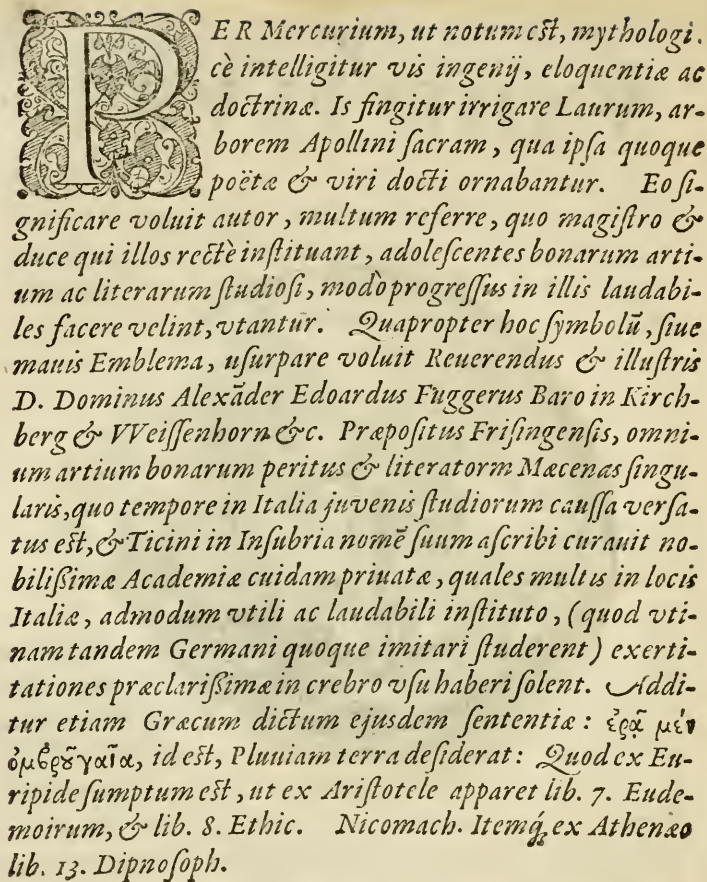 PER Mercurium, ut notum est, mythologi.
cè intelligitur vis ingenij, eloquentiæ ac
doctrinæ. Is fingitur irrigare Laurum, ar-
borem Apollini sacram, qua ipsa quoque
poëtæ & viri docti ornabantur. Eo si-
gnificare voluit autor, multum referre, quo magistro &
duce qui illos rectè instituant, adolescentes bonarum arti-
um ac literarum studiosi, modò progressus in illis laudabi-
les facere velint, vtantur. Quapropter hoc symbolũ, siue
mauis Emblema, usurpare voluit Reuerendus & illustris
D. Dominus Alexãder Edoardus Fuggerus Baro in Kirch-
berg & VVeissenhorn &c. Præpositus Frisingensis, omni-
um artium bonarum peritus & literatorm Mæcenas singu-
laris, quo tempore in Italia juvenis studiorum caussa versa-
tus est, & Ticini in Insubria nomẽ suum ascribi curauit no-
bilißimæ Academiæ cuidam priuatæ, quales multis in locis
Italiæ, admodum vtili ac laudabili instituto, (quod vti-
nam tandem Germani quoque imitari studerent) exerti-
tationes præclarißimæ in crebro vsu haberi solent. Addi-
tur etiam Græcum dictum ejusdem sententiæ: ἐρᾷ μὲν
ὄμβρȣ γαῖα, id est, Pluuiam terra desiderat: Quod ex Eu-
ripide sumptum est, ut ex Aristotele apparet lib. 7. Eude-
moirum, & lib. 8. Ethic. Nicomach. Itemq́ ex Athenæo
lib. 13. Dipnosoph.